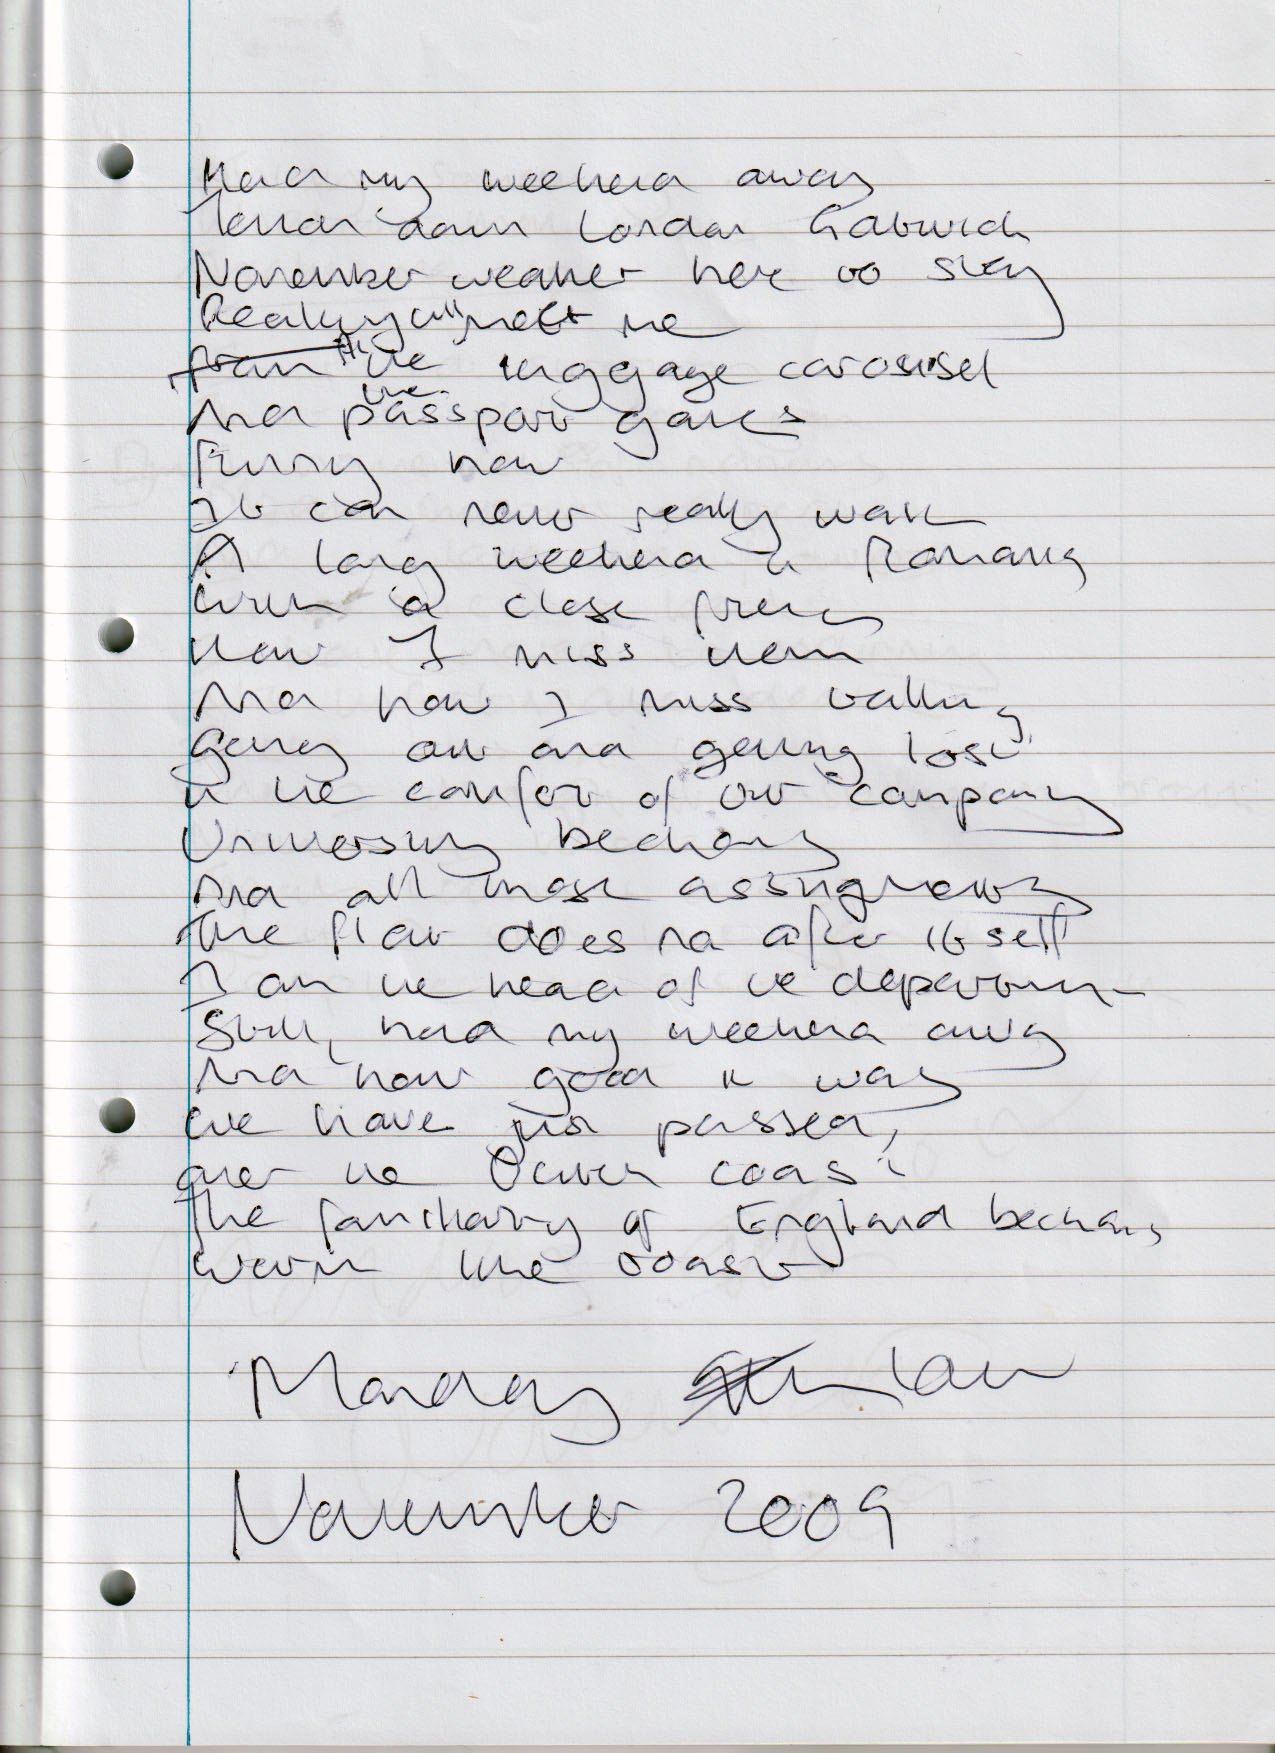 Had my weekend away
Touch down London Gatwick
November weather here to stay
Ready you'll meet me
from At the luggage carousel
And the passport gates
Funny how
It can never really wait
A long weekend in Romania
With a close friend
How I miss them
And how I miss talking
Going out and getting lost
in the comfort of our company
University beckons
And all those assignments
The flat does na after itself
I am the head of the department
Still, had my weekend away
And how good it was
We have just passed,
over the Dutch coast
The familiarity of England beckons
warm like toast
Monday
November 2009